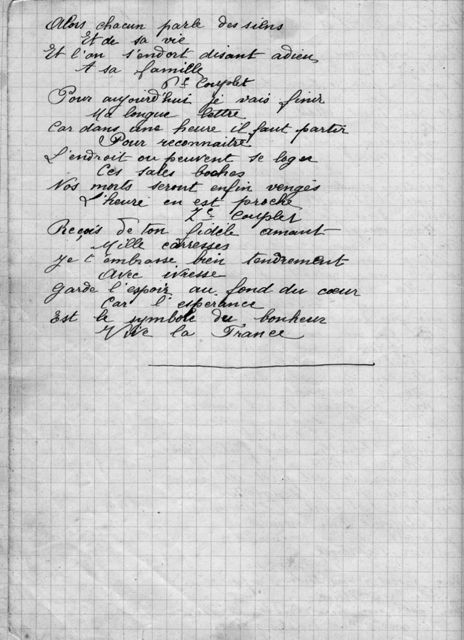 Alors chacun parle des siens
Et de sa vie
Et l'on s'endort disant adieu
A sa famille
Couplet
Pour aujourd'hui je vais finir
Ma longue lettre
Car dans une heure il faut partir
Pour reconnaitre
L'endroit ou peuvent se loger
Ces sales boches
Nos morts seront enfin vengés
L'heure en est proche
7e Couplet
Reçois de ton fidèle amant
Mille carresses
Je t'embrasse bien tendrement
Avec ivresse
Garde l'espoir au fond du cœur
Car l'esperance
Est le symbole du bonheur
Vive la France